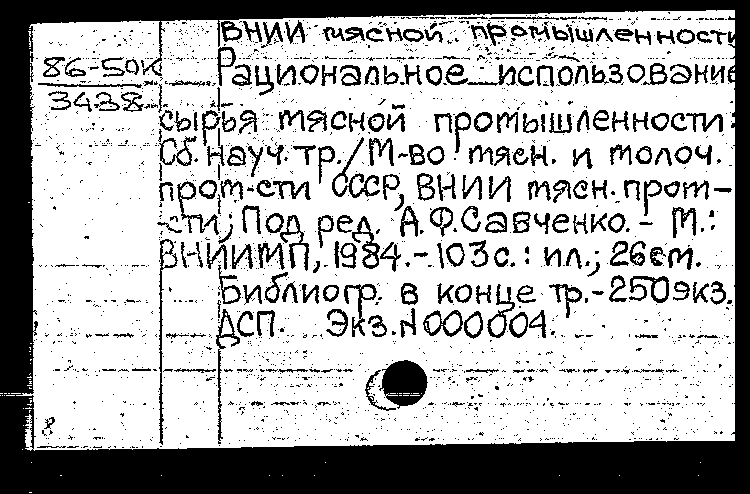 ВНИИ мясной промышленности
86-50к
3438
Рациональное использование
сырья мясной промышленности:
Сб. науч. тр./М-во мясн. и молоч.
пром-сти СССР, ВНИИ мясн. пром-
сти; Под ред. А.Ф.Савченко. - М.:
ВНИИМП, 1984. - 103 с.: ил.; 26 см.
Библиогр. в конце тр. - 250 экз.
ДСП. Экз. N 000004.
8